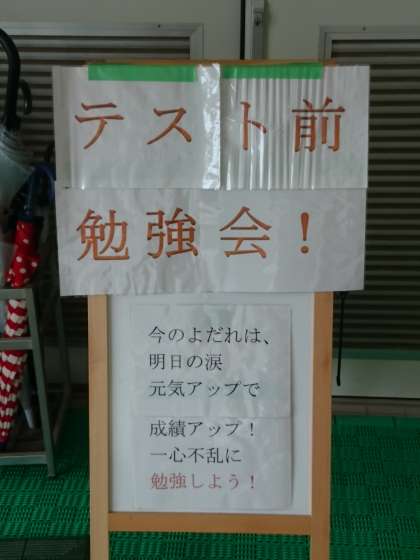 テスト前
勉強会！
今のよだれは、
明日の涙
元気アップで
成績アップ！
一心不乱に
勉強しよう！